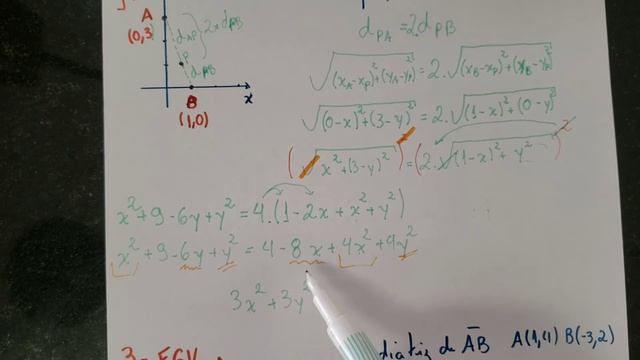 A
(0,3)
dAP
2xdPB
P
dPB
B
(1,0)
x
dPA = 2.dPB
√(xA-xP)²+(yA-yP)² = 2.√(xB-xP)²+(yB-yP)²
√(0-x)²+(3-y)² = 2.√(1-x)²+(0-y)²
(√x²+(3-y)²)² = (2.√(1-x)²+y²)²
x²+9-6y+y² = 4.(1-2x+x²+y²)
x²+9-6y+y² = 4-8x+4x²+4y²
3x²+3y²
3-
de AB A(1,4) B(-3,2)